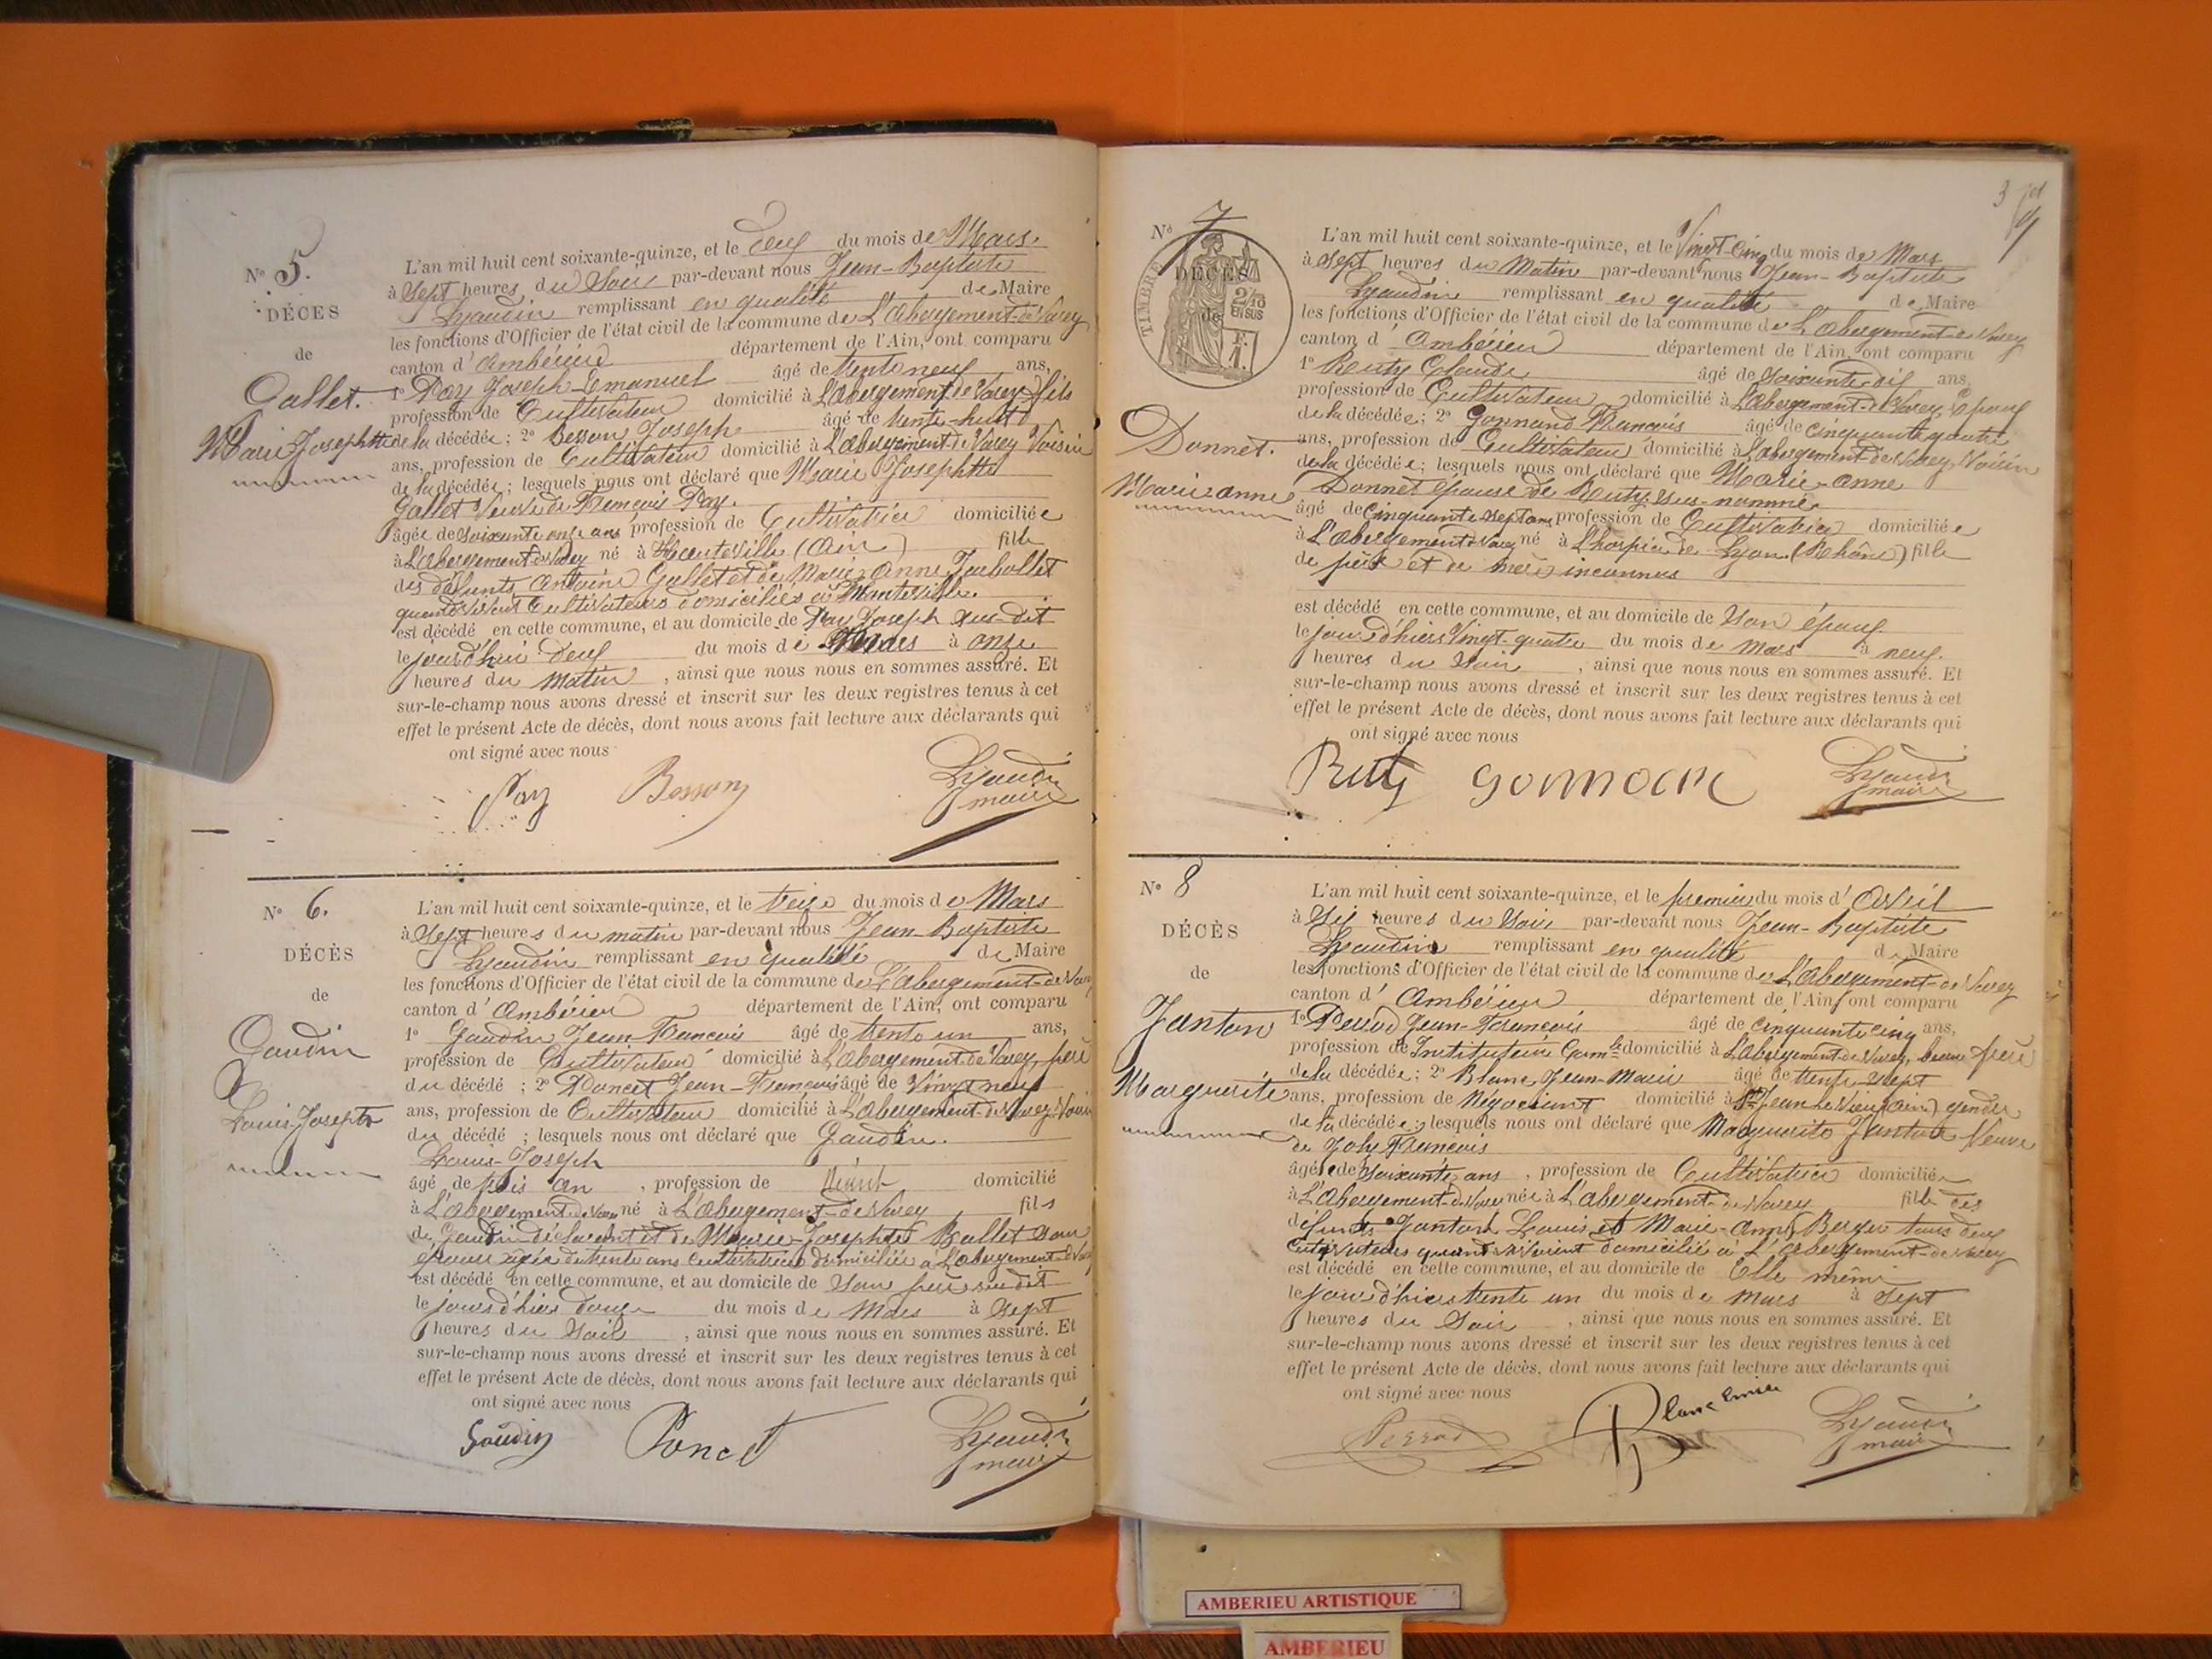 N° 5.
DÉCES
de
Gallet.
Marie Josephtte
L'an mil huit cent soixante-quinze, et le deux du mois de Mars.
à Sept heures du Soir par-devant nous Jean-Baptiste
Lyaudin remplissant en qualité de Maire
les fonctions d'Officier de l'état civil de la commune de L'Abergement-de Varey
canton d'Ambérieu département de l'Ain, ont comparu
1° Pay Joseph Emanuel âgé de trente neuf ans,
profession de Cultivateur domicilié à L'abergement de Varey fils
de la décédée ; 2° Besson Joseph âgé de trente-huit
ans, profession de Cultivateur domicilié à L'abergement de Varey Voisin
de la décédée ; lesquels nous ont déclaré que Marie Josephtte
Gallet Veuve de François Pay.
âgée de soixante onze ans profession de Cultivatrice domiciliée
à L'abergement de Varey né à Hauteville (Ain) fille
des défunts Antoine Gallet et de Marie Anne
quand vivent Cultivateurs domiciliés à
est décédé en cette commune, et au domicile de Pay Joseph sus-dit
le jourd'hui deux du mois de Mars à onze
heures du matin , ainsi que nous nous en sommes assuré. Et
sur-le-champ nous avons dressé et inscrit sur les deux registres tenus à cet
effet le présent Acte de décès, dont nous avons fait lecture aux déclarants qui
ont signé avec nous
Pay Besson Lyaudin
maire
N° 6.
DÉCÈS
de
Gaudin
Louis-Joseph
L'an mil huit cent soixante-quinze, et le treize du mois de Mars
à Sept heures du matin par-devant nous Jean-Baptiste
Lyaudin remplissant en qualité de Maire
les fonctions d'Officier de l'état civil de la commune de L'Abergement-de Varey
canton d'Ambérieu département de l'Ain, ont comparu
1° Gaudin Jean-François âgé de trente un ans,
profession de Cultivateur domicilié à L'abergement de Varey, père
du décédé ; 2° Poncet Jean-François âgé de Vingt neuf
ans, profession de Cultivateur domicilié à L'abergement-de Varey Voisin
du décédé ; lesquels nous ont déclaré que Gaudin.
Louis-Joseph
âgé de an , profession de Néant domicilié
à L'abergement de Varey né à L'abergement-de Varey fils
de Gaudin déclarant et de Marie-Josephte Ballet son
épouse agée de trente ans cultivatrice domiciliée à L'abergement de Varey
est décédé en cette commune, et au domicile de son père sus dit
le jour d'hier douze du mois de Mars à Sept
heures du Soir , ainsi que nous nous en sommes assuré. Et
sur-le-champ nous avons dressé et inscrit sur les deux registres tenus à cet
effet le présent Acte de décès, dont nous avons fait lecture aux déclarants qui
ont signé avec nous
Gaudin Poncet Lyaudin
maire
3
N° 7
TIMBRE
DÉCÈS
de
2/10
EN SUS
F.
1.
Donnet.
Marie anne
L'an mil huit cent soixante-quinze, et le Vingt-Cinq du mois de Mars
à Sept heures du Matin par-devant nous Jean-Baptiste
Lyaudin remplissant en qualité de Maire
les fonctions d'Officier de l'état civil de la commune de L'abergement-de Varey
canton d'Ambérieu département de l'Ain, ont comparu
1° Reuty Claude âgé de soixante dix ans,
profession de Cultivateur domicilié à L'abergement-de Varey, Epoux
de la décédée; 2° Gonnand François âgé de cinquante quatre
ans, profession de Cultivateur domicilié à L'abergement de Varey, Voisin
de la décédée; lesquels nous ont déclaré que Marie-anne
Donnet épouse de Reuty sus-nommé
âgé de Cinquante Sept ans profession de Cultivatrice domiciliée
à L'abergement de Varey né à L'hospice de Lyon (Rhône) fille
de père et de mère inconnus
est décédé en cette commune, et au domicile de son époux
le jour d'hier Vingt-quatre du mois de Mars à neuf.
heures du Soir , ainsi que nous nous en sommes assuré. Et
sur-le-champ nous avons dressé et inscrit sur les deux registres tenus à cet
effet le présent Acte de décès, dont nous avons fait lecture aux déclarants qui
ont signé avec nous
Lyaudin
maire
N° 8
DÉCÈS
de
Janton
Marguerite
L'an mil huit cent soixante-quinze, et le premier du mois d'Avril
à Six heures du Soir par-devant nous Jean-Baptiste
Lyaudin remplissant en qualité de Maire
les fonctions d'Officier de l'état civil de la commune de L'abergement-de Varey
canton d'Ambérieu département de l'Ain, ont comparu
1° Perrod Jean-François âgé de cinquante cinq ans,
profession de Instituteur Com.le domicilié à L'abergement-de Varey, beau frère
de la décédée; 2° Blanc Jean-Marie âgé de trente sept
ans, profession de Négociant domicilié à St Jean Le Vieux (Ain) gendre
de la décédée; lesquels nous ont déclaré que Marguerite Janton Veuve
de Joly François
âgée de soixante ans , profession de Cultivatrice domiciliée
à L'abergement-de Varey née à L'abergement-de Varey fille des
défunts Janton Louis et Marie-Anne Berger tous deux
Cultivateurs quand vivaient domicilié à L'abergement-de Varey
est décédé en cette commune, et au domicile de Elle même
le jour d'hier trente un du mois de Mars à Sept
heures du Soir , ainsi que nous nous en sommes assuré. Et
sur-le-champ nous avons dressé et inscrit sur les deux registres tenus à cet
effet le présent Acte de décès, dont nous avons fait lecture aux déclarants qui
ont signé avec nous
Perrod Blanc Lyaudin
maire
AMBERIEU ARTISTIQUE
AMBERIEU